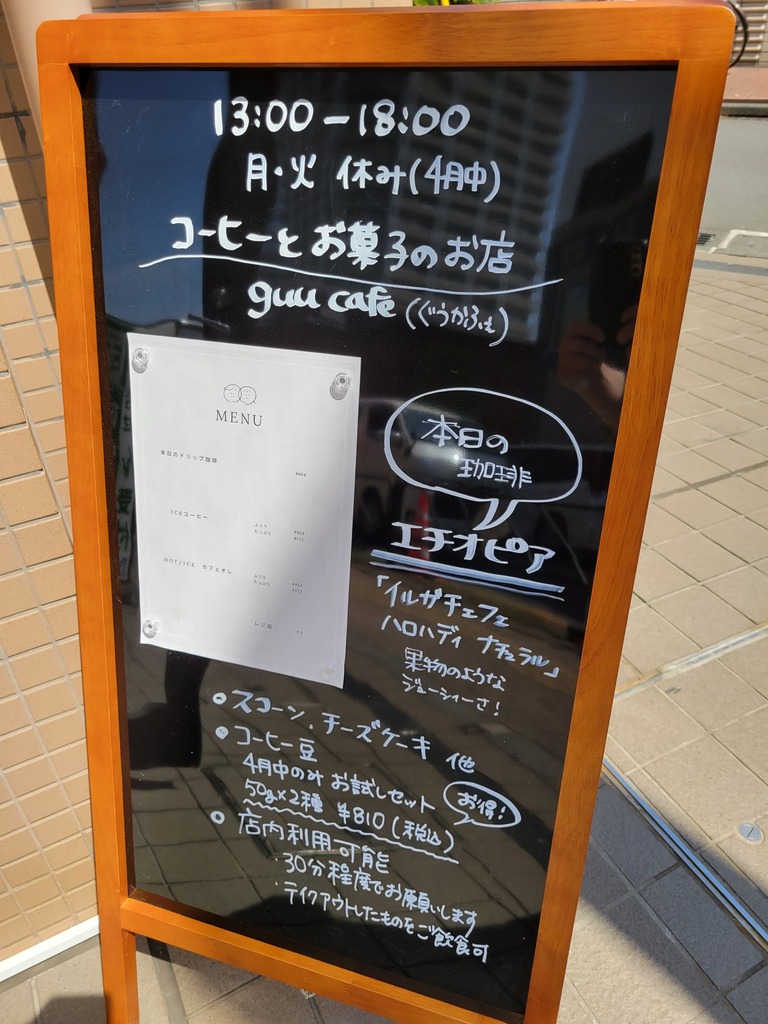 13:00-18:00
月・火 休み(4月中)
コーヒーとお菓子のお店
guu cafe (ぐぅかふぇ)
MENU
本日のドリップ珈琲
ICEコーヒー
ふつう
たっぷり
HOT/ICE カフェオレ
ふつう
たっぷり
レジ袋
本日の
珈琲
エチオピア
「イルガチェフェ
ハロハディ ナチュラル」
果物のような
ジューシーさ!
スコーン、チーズケーキ 他
コーヒー豆
4月中のみ お試しセット
50g×2種 ¥810(税込)
お得!
店内利用可能
・30分程度でお願いします
・テイクアウトしたものをご飲食可